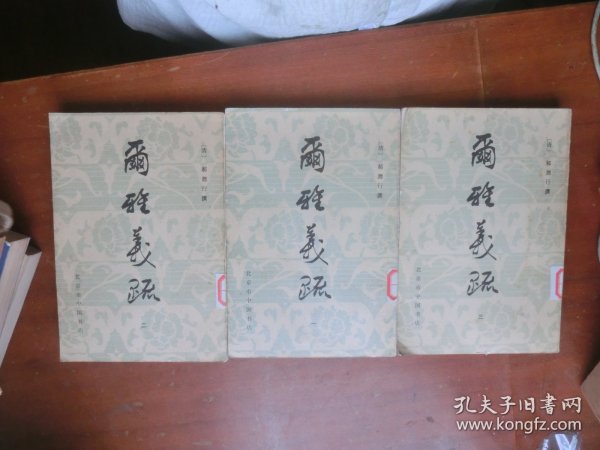 〔清〕郝懿行撰
爾雅義疏
北京市中国书店
二
〔清〕郝懿行撰
爾雅義疏
北京市中国书店
一
〔清〕郝懿行撰
爾雅義疏
北京市中国书店
三
孔夫子旧书网
www.kongfz.com